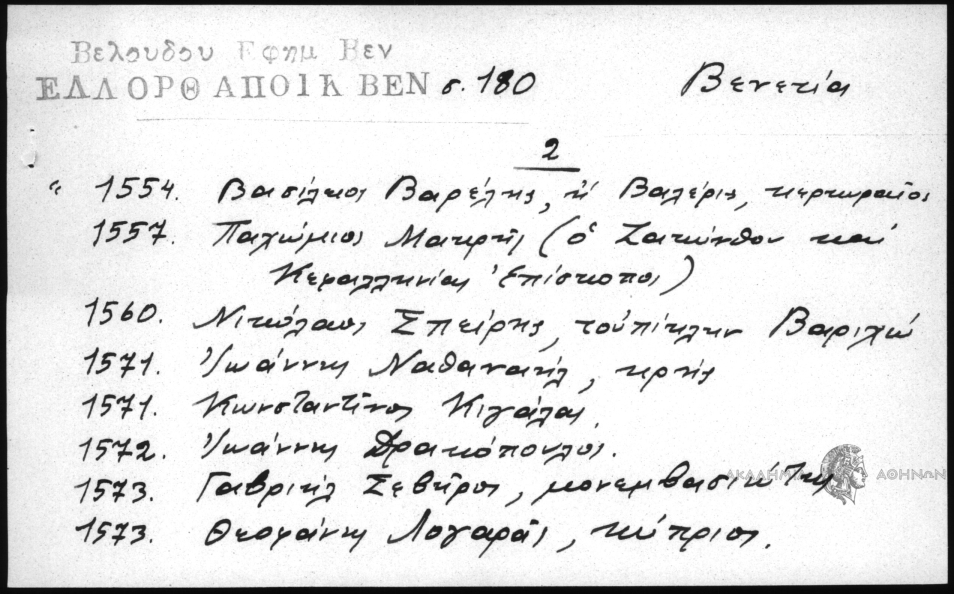 Βελουδου Εφημ Βεν
ΕΛΛ ΟΡΘ ΑΠΟΙΚ ΒΕΝ σ. 180 Βενετία
2
" 1554. Βασίλειος Βαρέλης, ἢ Βαλέρις, κερκυραῖος
1557. Παχώμιος Μακρῆς (ὁ Ζακύνθου καὶ
Κεφαλληνίας Ἐπίσκοπος)
1560. Νικόλαος Σπείρης, τοὐπίκλην Βαριχᾶ
1571. Ἰωάννης Ναθαναήλ, κρής
1571. Κωνσταντῖνος Κιγάλας
1572. Ἰωάννης Δρακόπουλος.
1573. Γαβριήλ Σεβῆρος, μονεμβασιώτης
1573. Θεοφάνης Λογαρᾶς, κύπριος.
ΑΚΑΔΗΜΙΑ ΑΘΗΝΩΝ